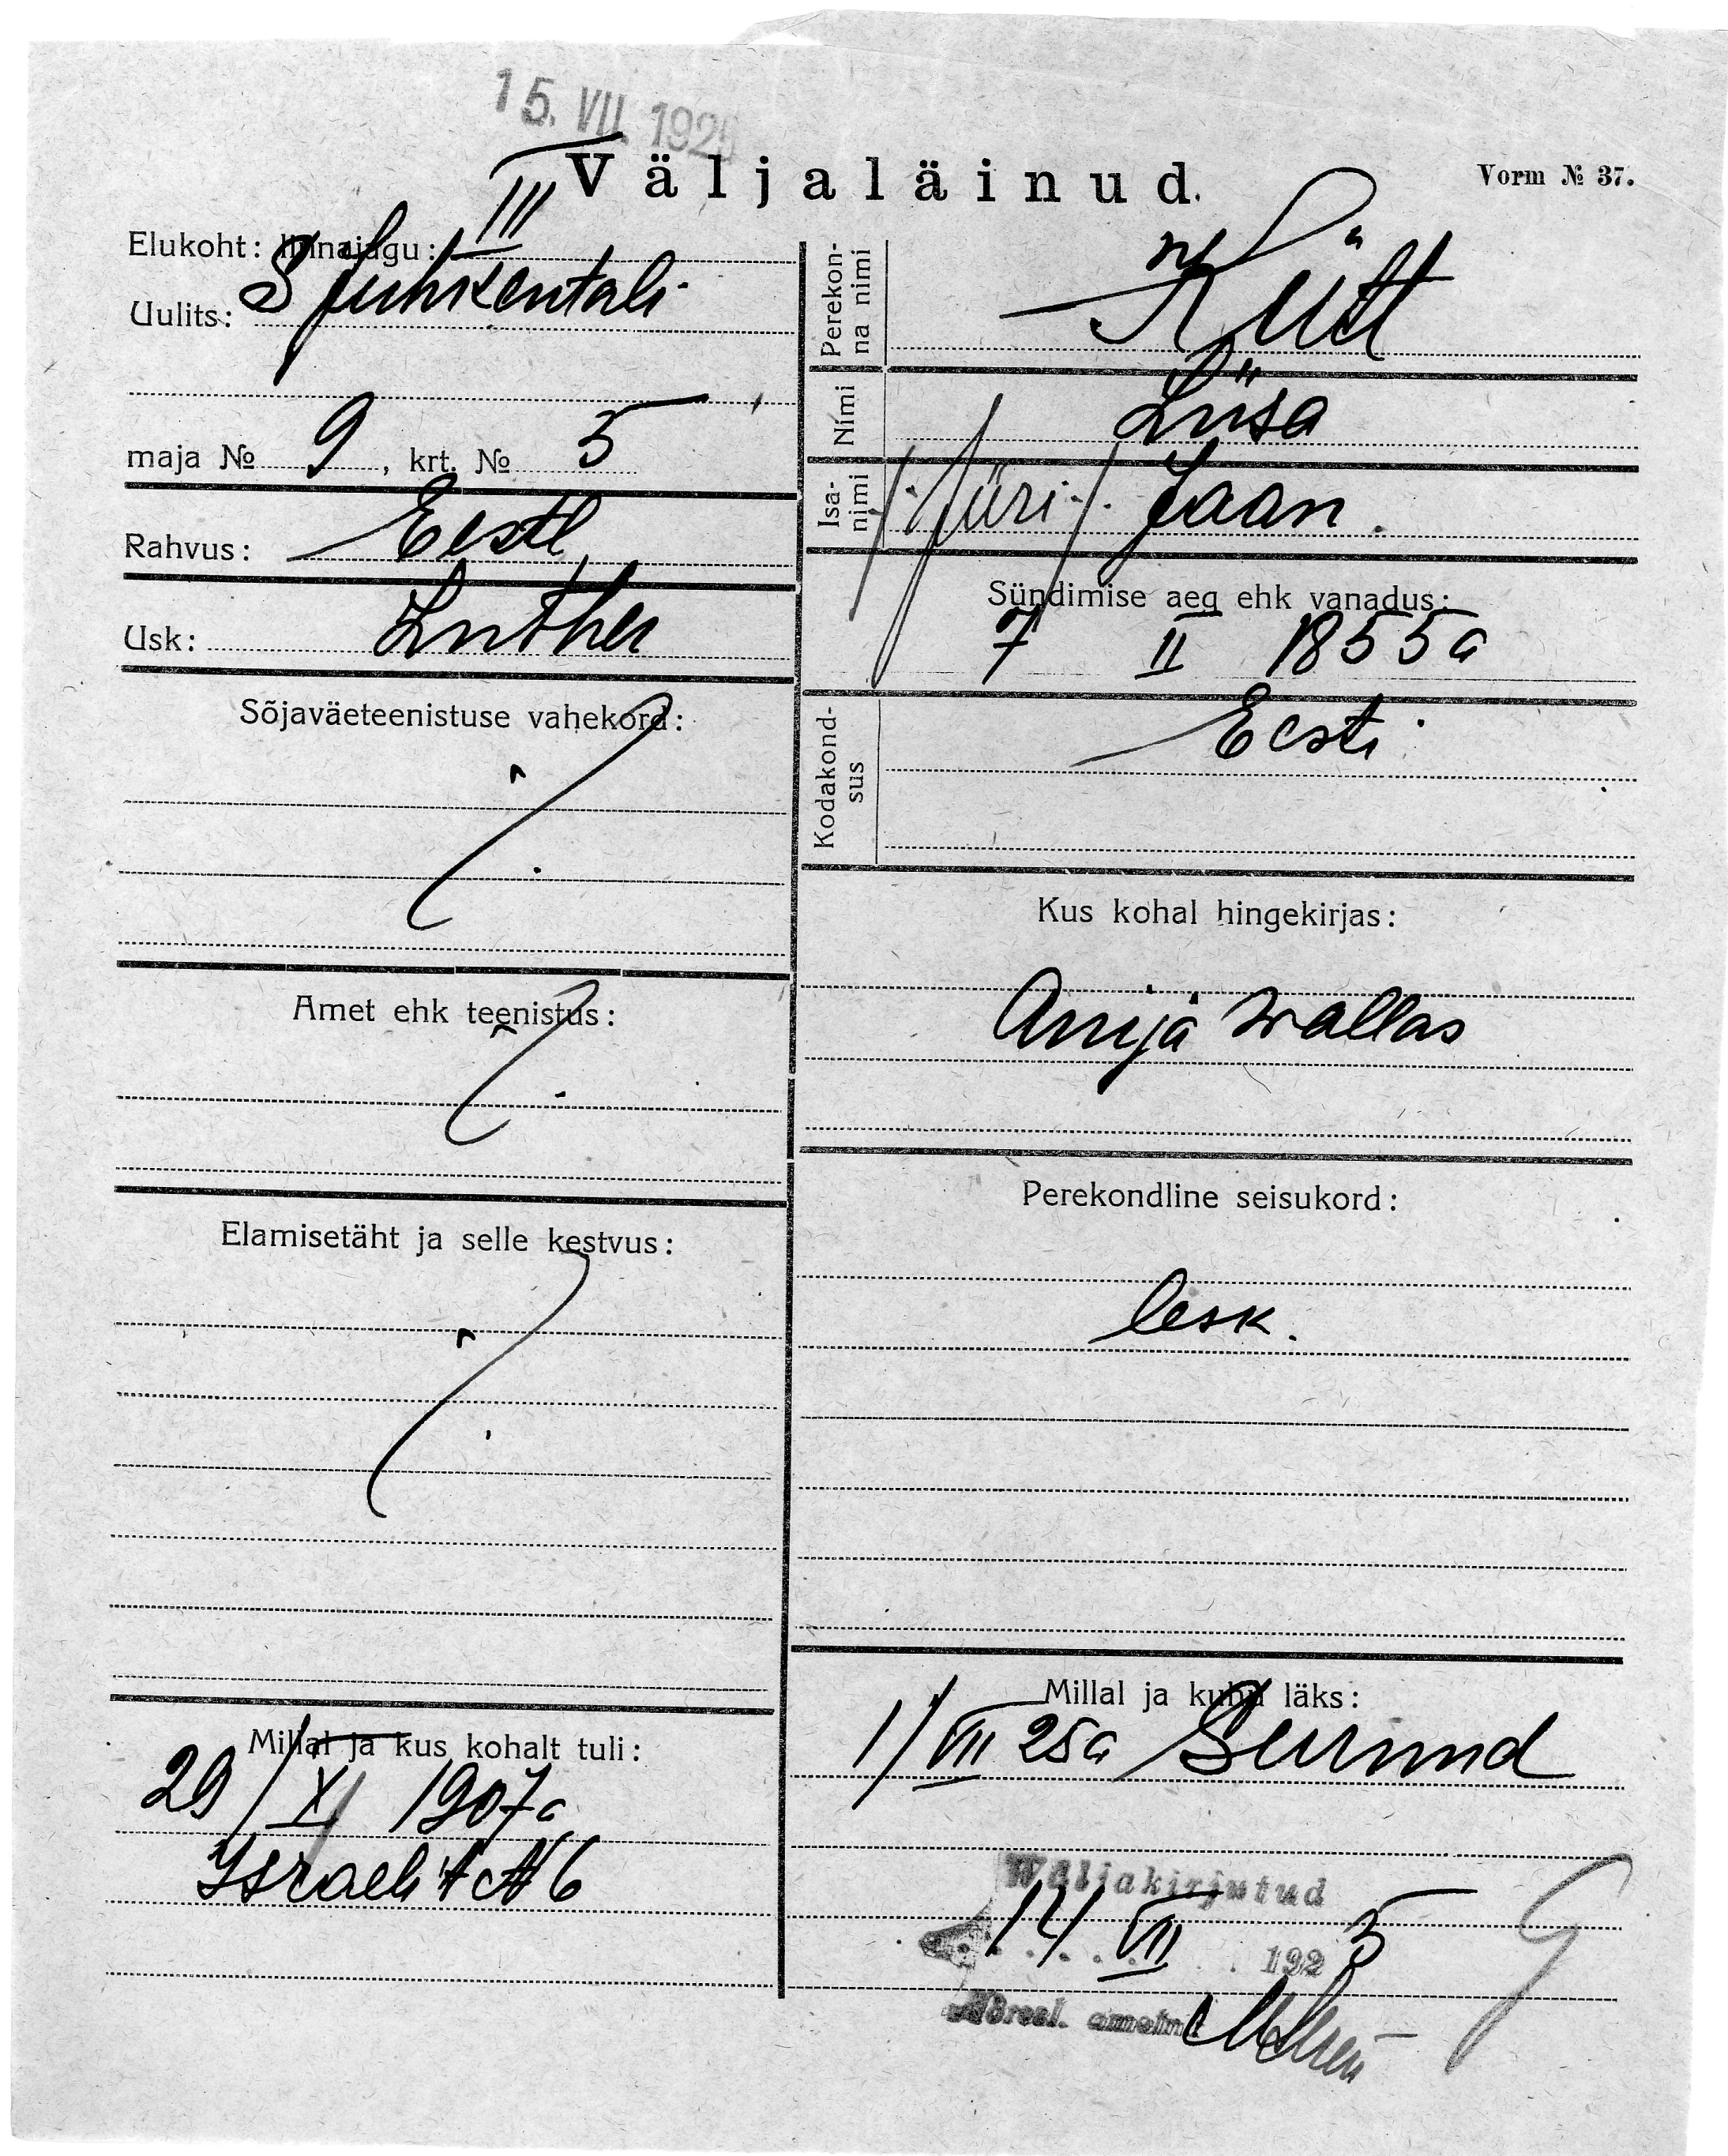 15. VII. 1925
Väljaläinud.
Vorm № 37.
Elukoht: linnajagu: III
Uulits: S Juhkentali
maja № 9, krt. № 5
Rahvus: Eesti
Usk: Luther
Sõjaväeteenistuse vahekord:
Amet ehk teenistus:
Elamisetäht ja selle kestvus:
Millal ja kus kohalt tuli:
29/XI 1907a
Israeli t № 6
Perekonna nimi
Kütt
Nimi
Liisa
Isanimi
/Jüri/. Jaan.
Sündimise aeg ehk vanadus:
7 II 1855a
Kodakondsus
Eesti
Kus kohal hingekirjas:
Anija wallas
Perekondline seisukord:
lesk.
Millal ja kuhu läks:
1/VII 25a Surnud
Wäljakirjutud
14 VII 1925